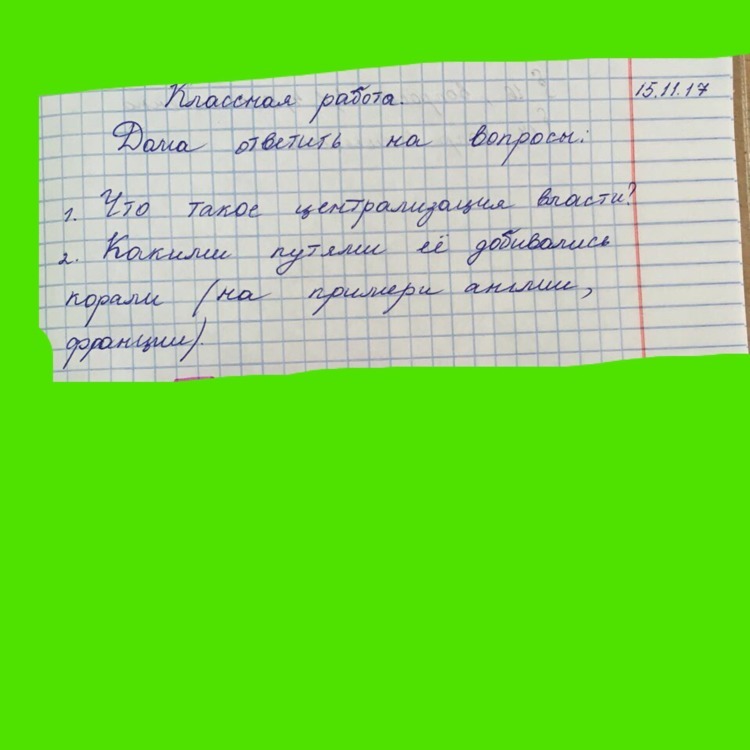 Классная работа. 15.11.17
Дома ответить на вопросы:
1. Что такое централизация власти?
2. Какими путями её добивались
корали (на примери англии,
франции).